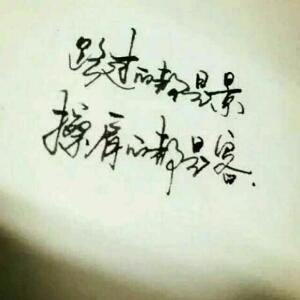 路过的都是景
擦肩的都是客.